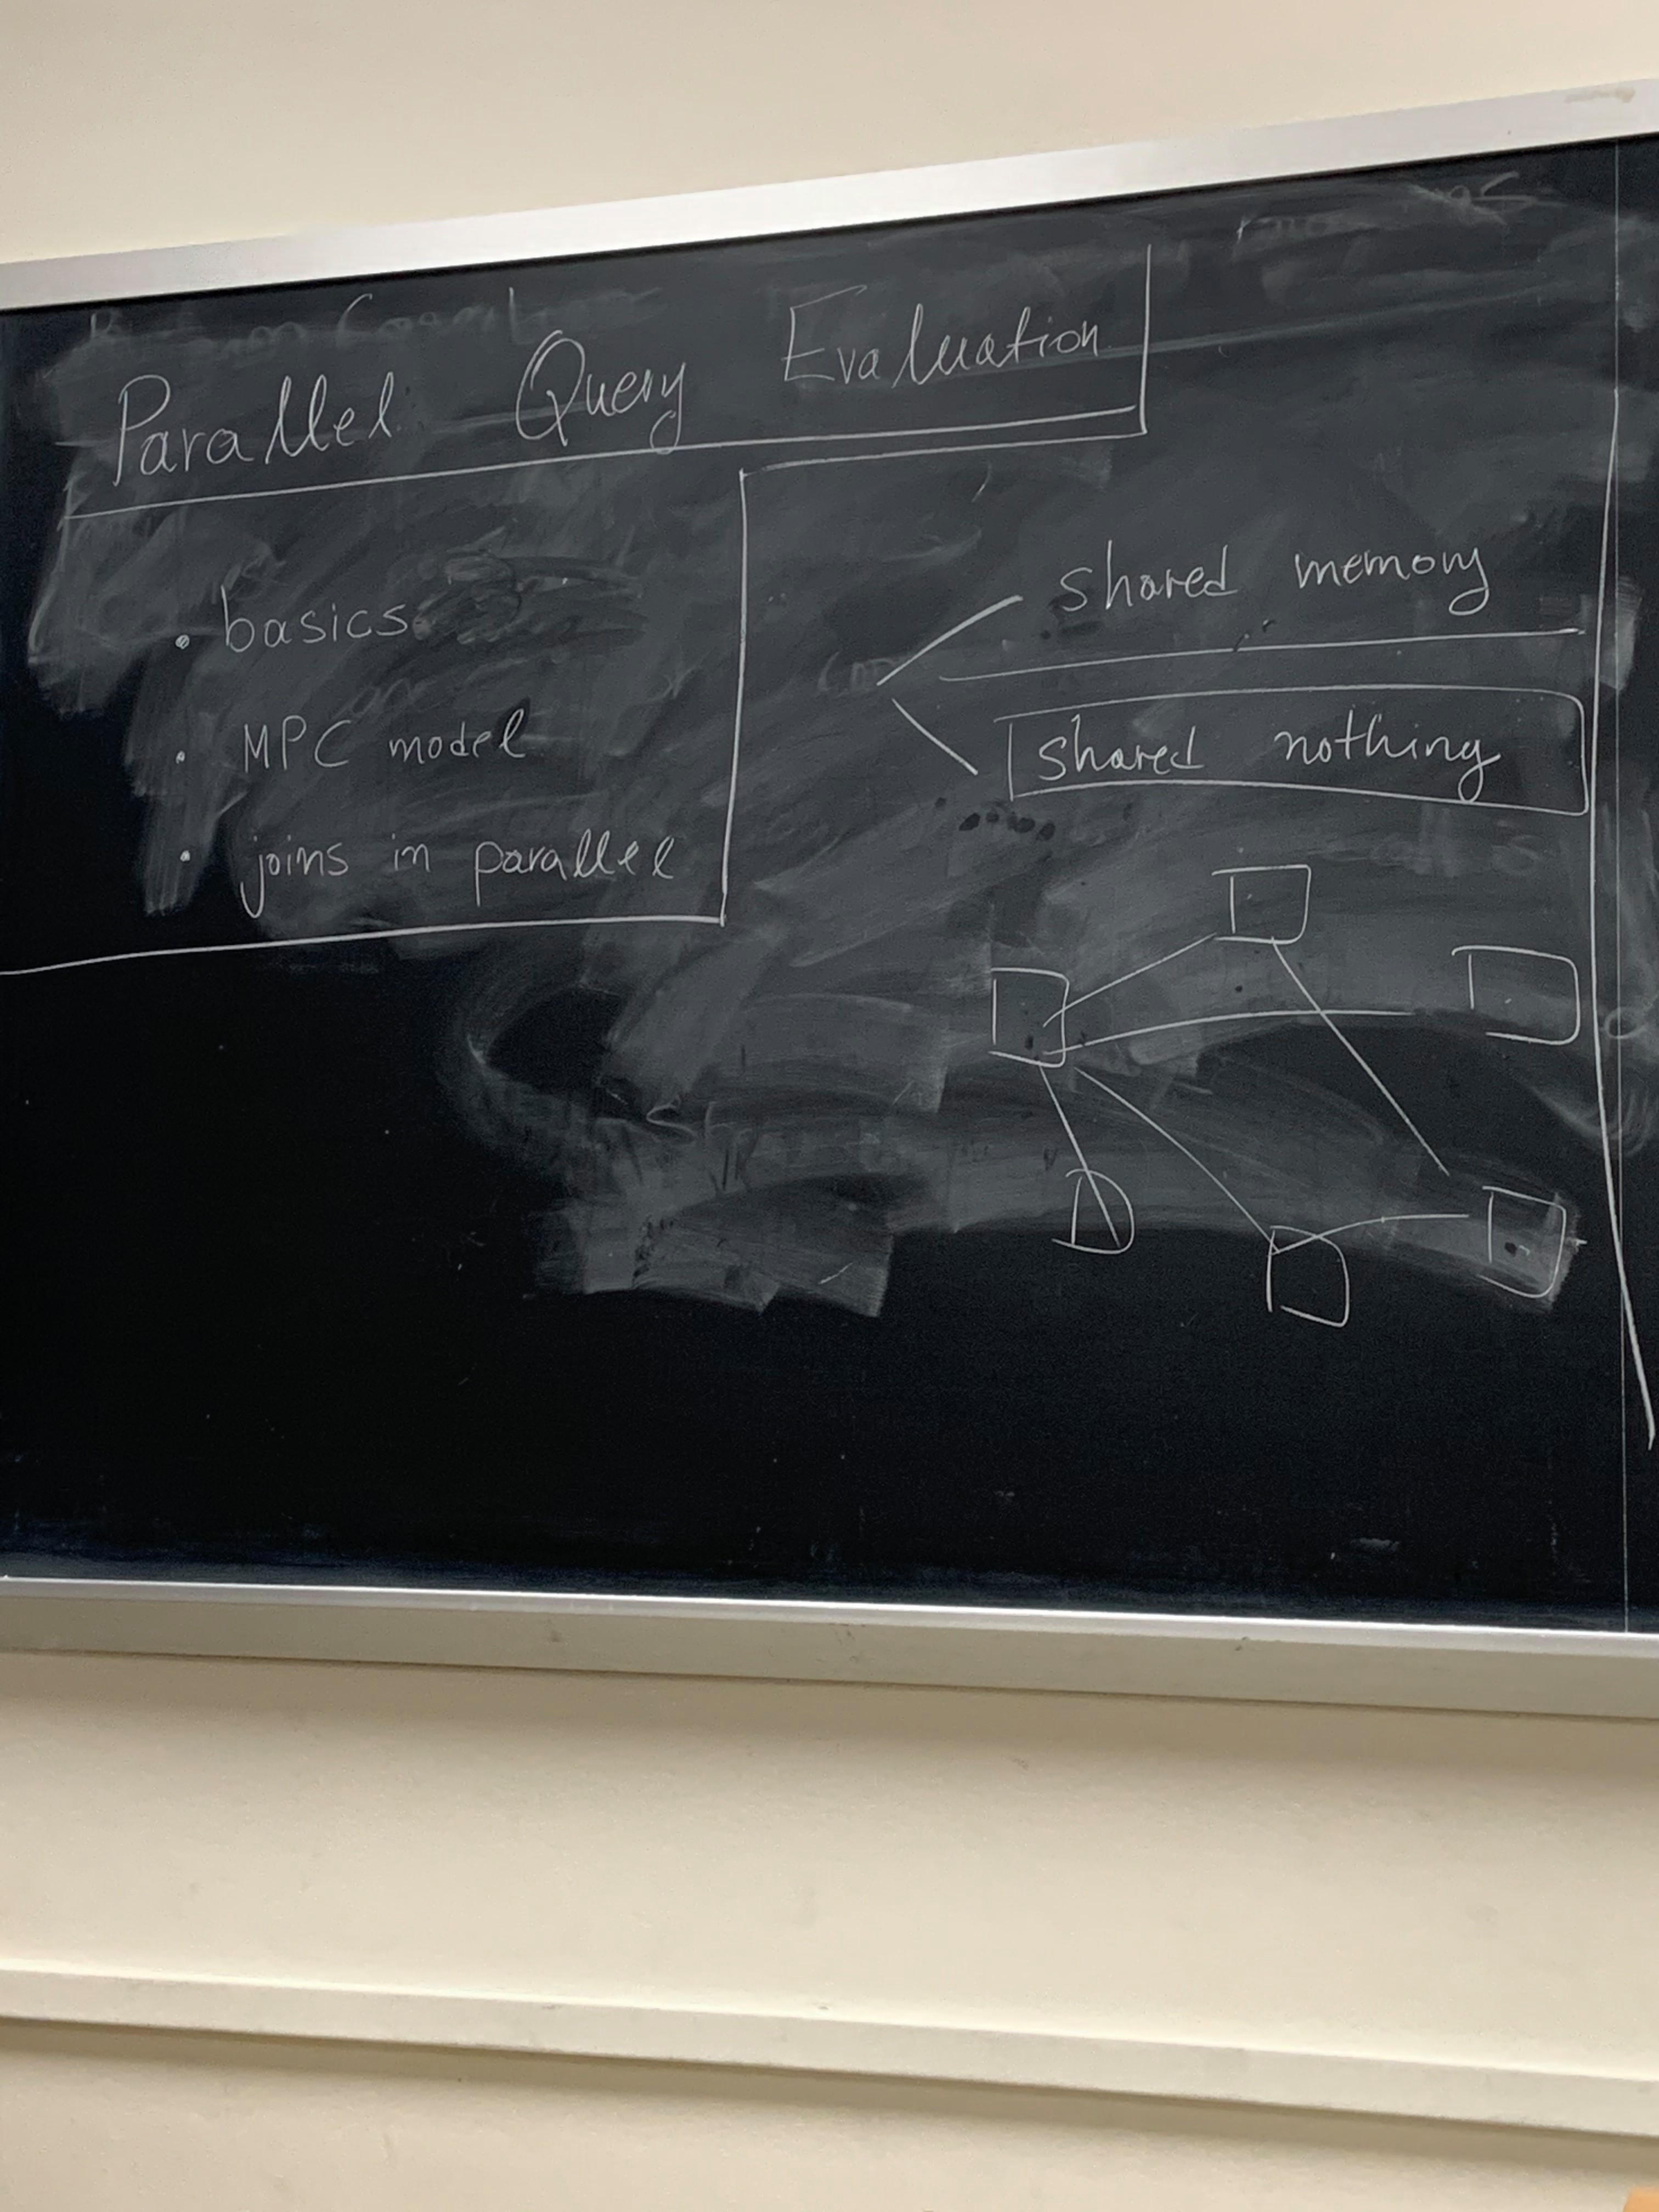 Parallel Query Evaluation
• basics
• MPC model
• joins in parallel
shared memory
shared nothing